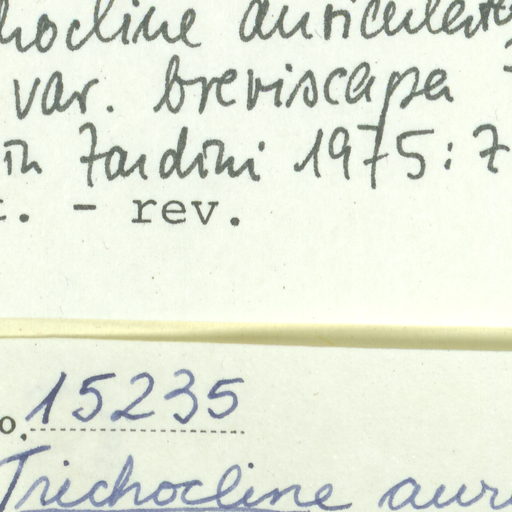 hocline auriculata
var. breviscapa
in Zardini 1975: 7
t. - rev.
o. 15235
Trichocline aur